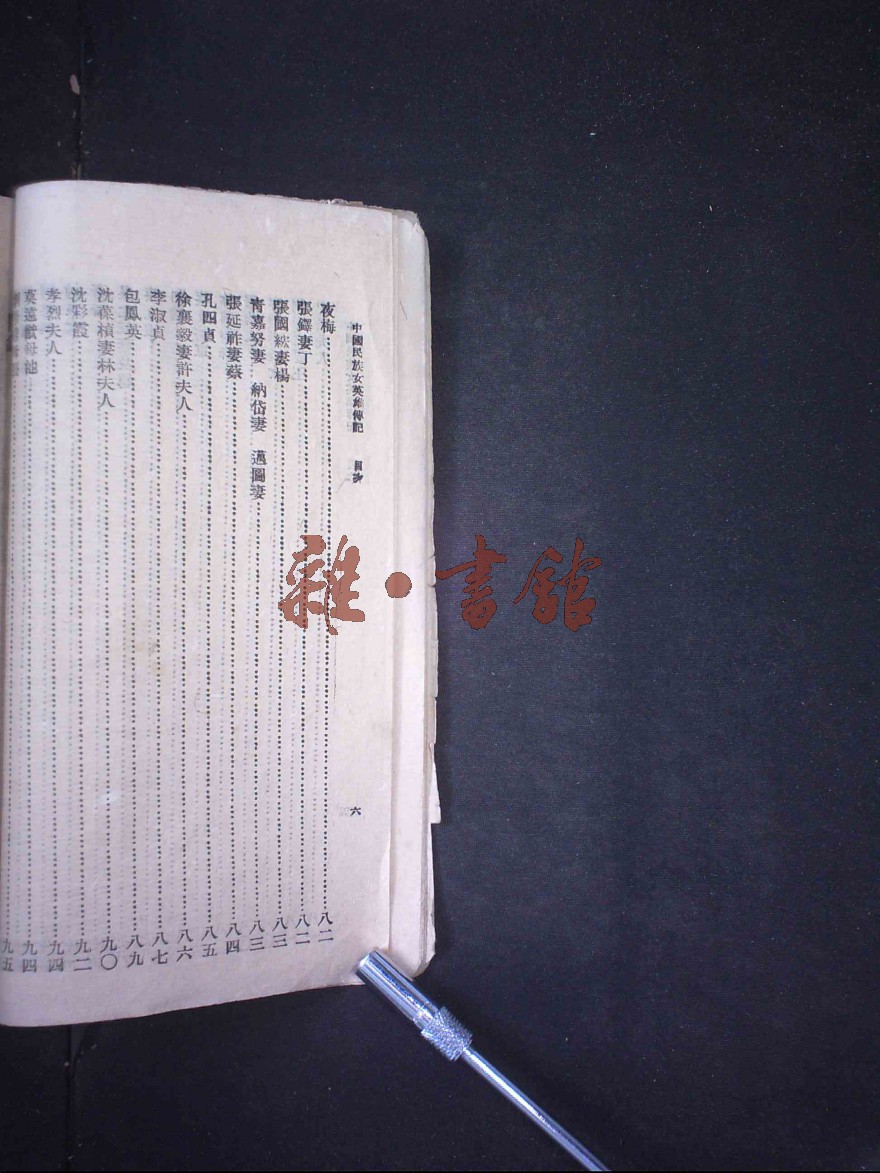 中國民族女英雄傳記 目次 六
夜梅……八二
張鐸妻丁……八二
張國紘妻楊……八三
青嘉努妻 納岱妻 邁圖妻……八三
張延祚妻蔡……八四
孔四貞……八五
徐襄毅妻許夫人……八六
李淑貞……八七
包鳳英……八九
沈葆楨妻林夫人……九〇
沈彩霞……九二
孝烈夫人……九四
……九四
……九五
雜·書館